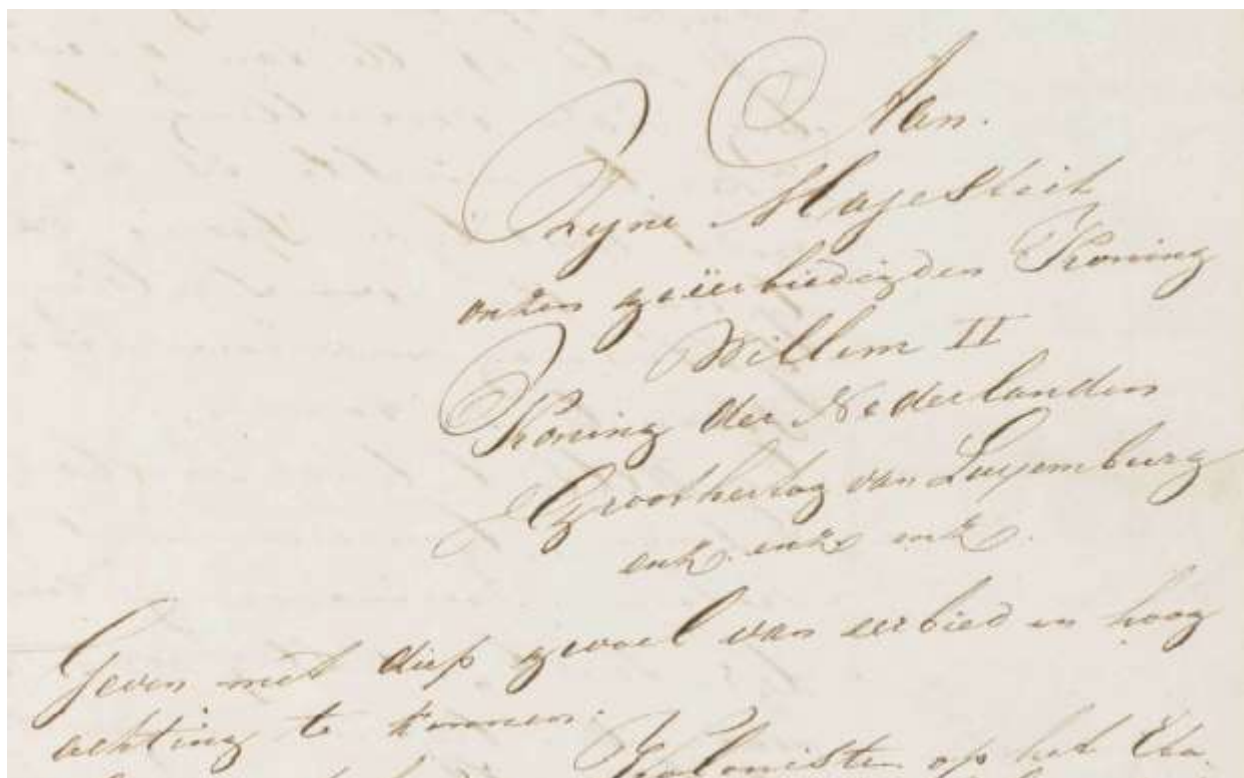 Aan.
Zijne Majesteit
onzen geëerbiedigden Koning
Willem II
Koning der Nederlanden
Groothertog van Luxemburg
enz. enz. enz.
Geven met diep gevoel van eerbied en hoog
achting te kennen.
Kolonisten op het Eta